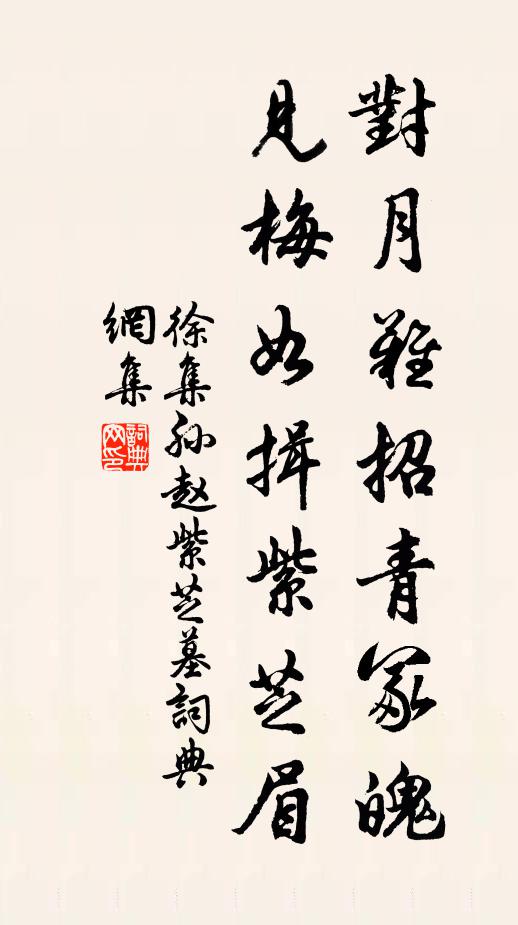 對月難招青冢魄
見梅如揖紫芝眉
徐集孙赵紫芝墓詞典
網集
詞典
网印